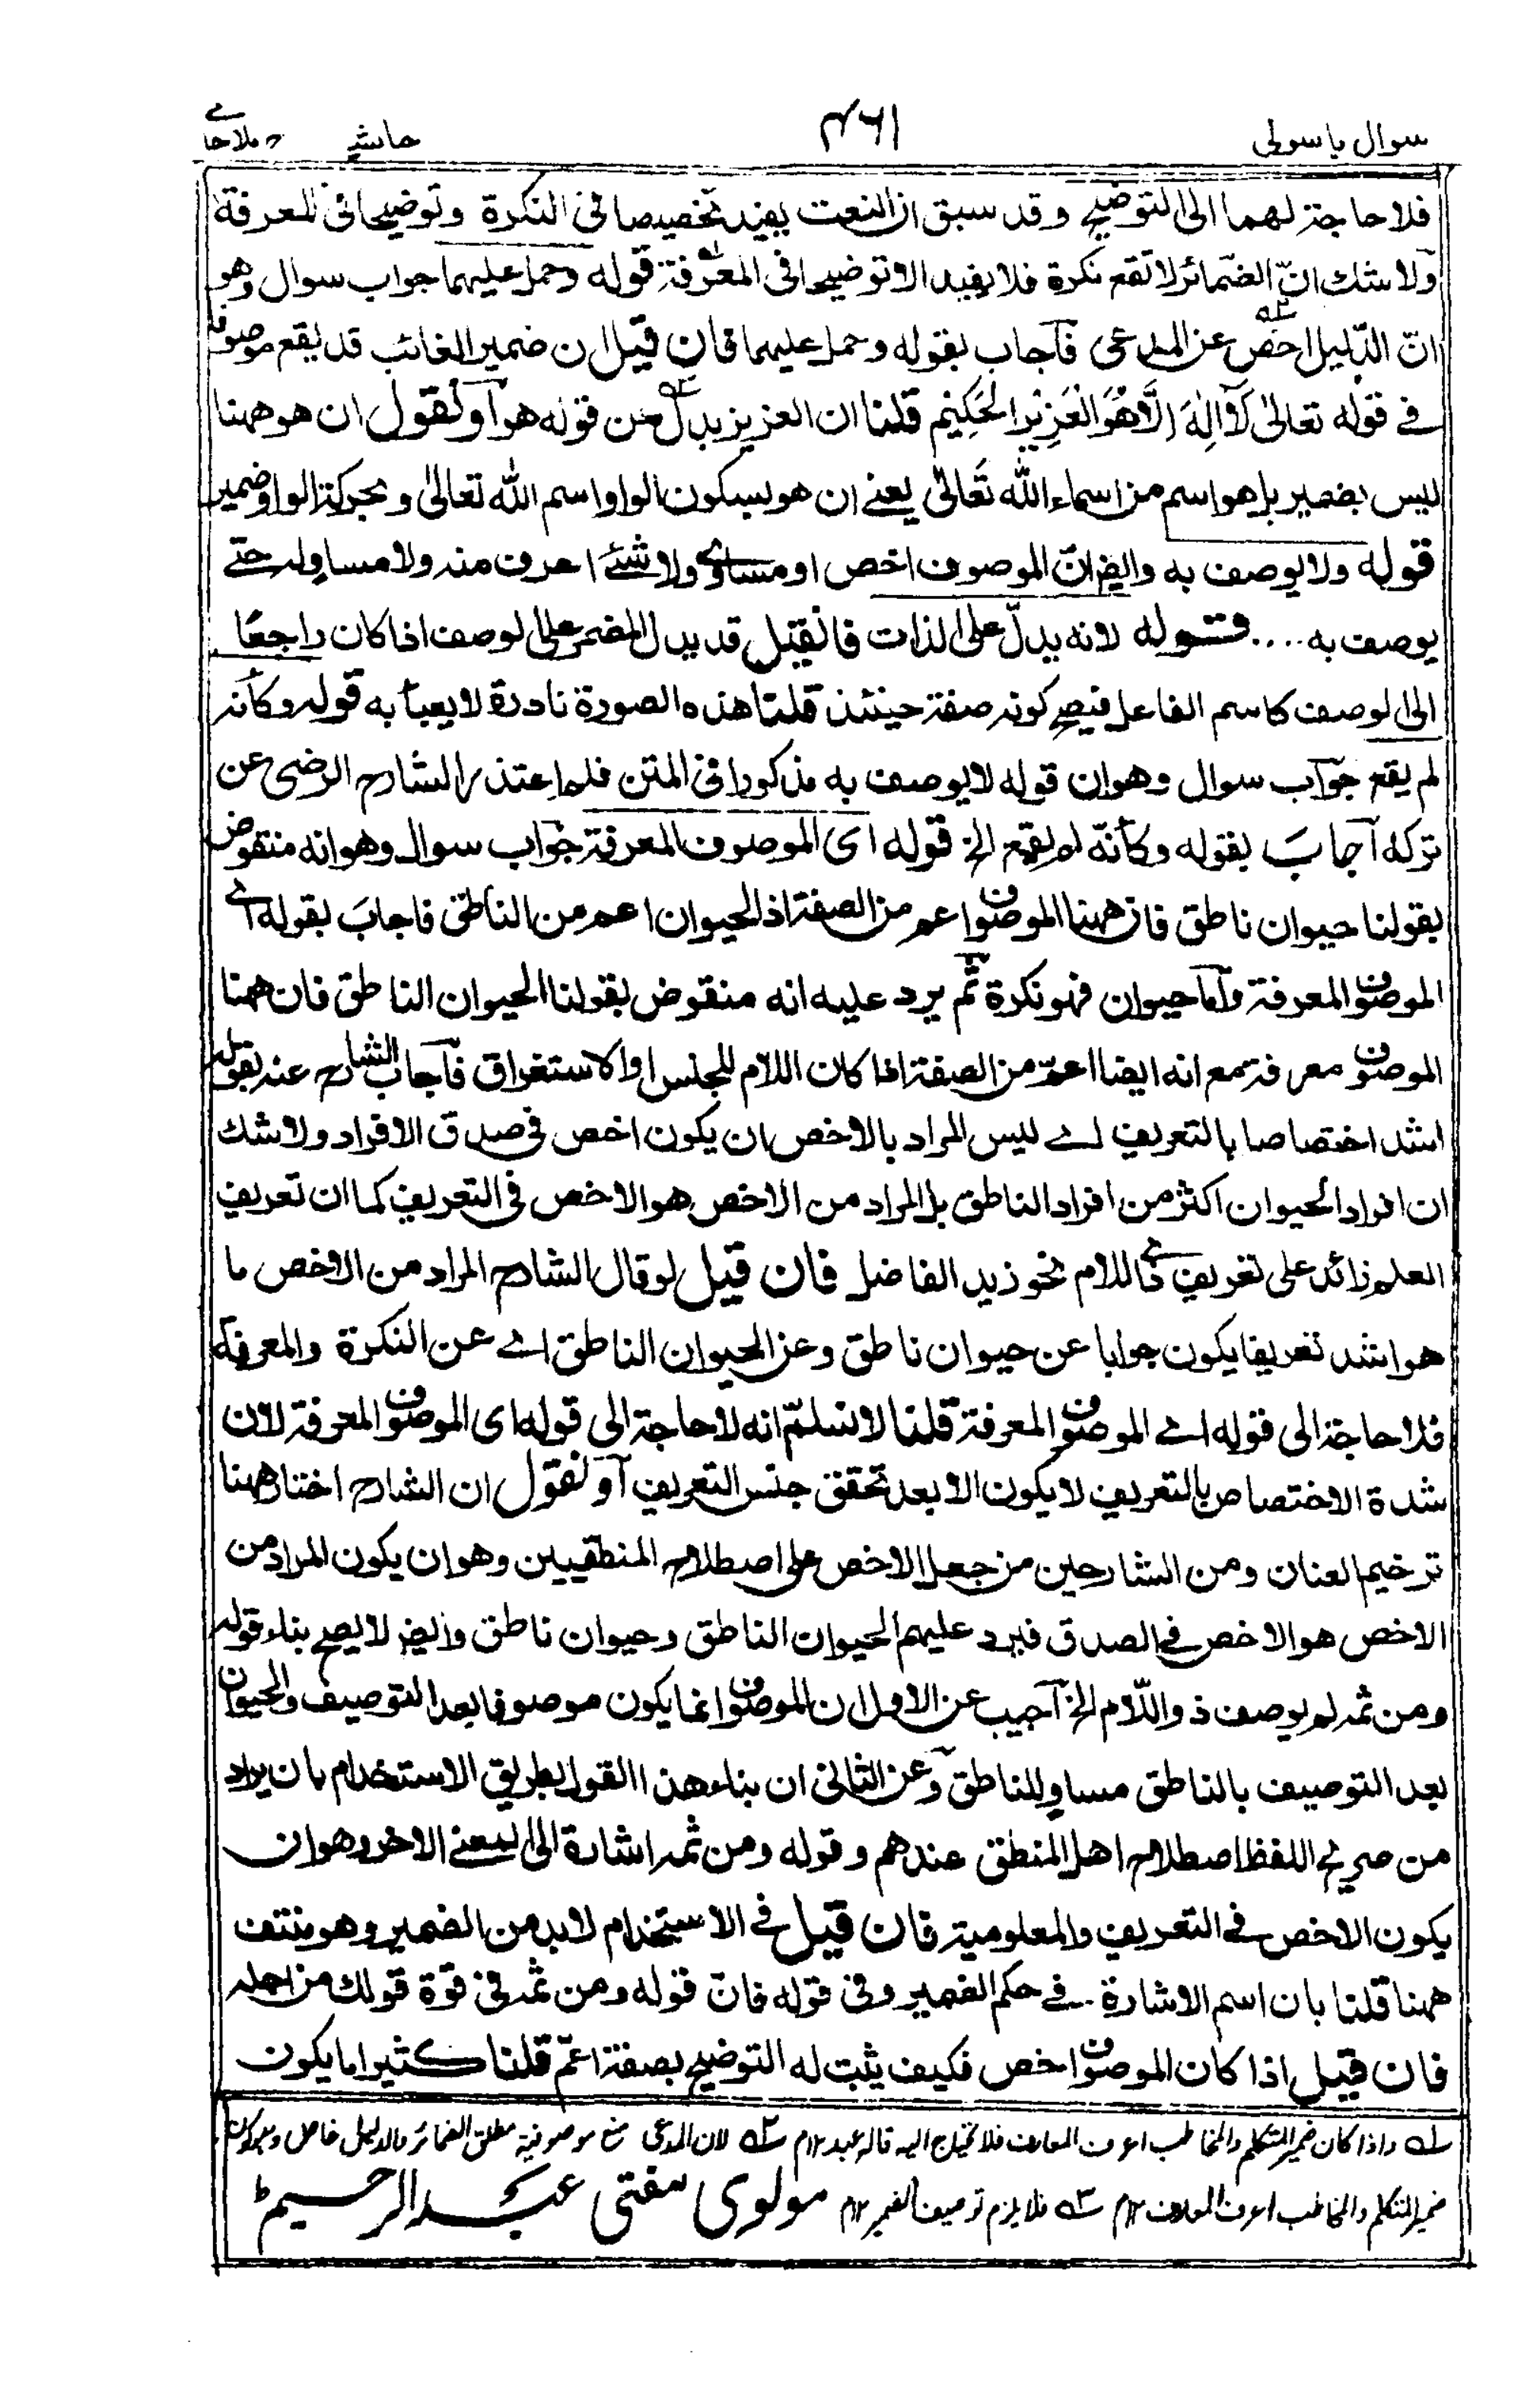 سوال باسولی ۴۶۱ حاشیہ ملا جامے
فلا حاجة لهما الى التوضيح وقد سبق ان النعت يفيد تخصيصا فى النكرة وتوضيحا فى المعرفة
ولا شك انّ الضمائر لا تقع نكرة فلا يفيد الا توضيحا فى المعرفة قوله وحمل عليهما جواب سوال وهو
انّ الدّليل اخص عن المدعى فآجاب بقوله وحمل عليهما فان قيل ان ضمير الغائب قد يقع موصوفا
فے قوله تعالىٰ لَآ اِلٰهَ اِلَّا هُوَ الْعَزِيْزُ الْحَكِيْم قلنا ان العزيز بدل من قوله هو آو نقول ان هو ههنا
ليس بضمير بل هو اسم من اسماء الله تَعَالىٰ يعنے ان هو بسكون الواو اسم الله تعالىٰ وبحركة الواو ضمير
قوله ولا يوصف به وايضا انّ الموصوف اخص او مساوٍ ولا شئے اعرف منه ولا مساوله حتے
يوصف به .... قوله لانه يدلّ على الذات فانقيل قد يدل المضمر على الوصف اذا كان راجعًا
الى الوصف كاسم الفاعل فيصح كونه صفة حينئذ قلنا هذه الصورة نادرة لا يعبأ به قوله وكأنه
لم يقع جوآب سوال وهو ان قوله لا يوصف به مذكورا فى المتن فلم اعتذر الشارح الرضى عن
تركه آجابَ بقوله وكأنّه لم يقع الخ قوله اى الموصوف المعرفة جواب سوال وهو انه منقوض
بقولنا حيوان ناطق فان ههنا الموصوف اعم من الصفة اذ الحيوان اعم من الناطق فاجابَ بقوله اے
الموصوف المعرفة وآما حيوان فهو نكرة ثم يرد عليه انه منقوض بقولنا الحيوان الناطق فان ههنا
الموصوف معرفة مع انه ايضا اعمّ من الصفة اذا كان اللام للجنس او الاستغراق فآجاب الشارح عنه بقوله
اشد اختصاصا بالتعريف اے ليس المراد بالاخص ان يكون اخص فى صدق الافراد ولا شك
ان افراد الحيوان اكثر من افراد الناطق بل المراد من الاخص هو الاخص فى التعريف كما ان تعريف
العلم زائد على تعريف ذى اللام نحو زيد الفاضل فان قيل لو قال الشارح المراد من الاخص ما
هو اشد تعريفا يكون جوابا عن حيوان ناطق وعن الحيوان الناطق اے عن النكرة والمعرفة
فلا حاجة الى قوله اے الموصوف المعرفة قلنا لا نسلمّ انه لا حاجة الى قوله اى الموصوف المعرفة لان
شدة الاختصاص بالتعريف لا يكون الا بعد تحقق جنس التعريف آو نقول ان الشارح اختار ههنا
ترخيم العنان ومن الشارحين من جعل الاخص على اصطلاح المنطقيين وهو ان يكون المراد من
الاخص هو الاخص فے الصدق فيرد عليهم الحيوان الناطق وحيوان ناطق وايضا لا يصح بناء قوله
ومن ثمه لم يوصف ذو اللّام الخ آجيب عن الاول ان الموصوف انما يكون موصوفا بعد التوصيف والحيوان
بعد التوصيف بالناطق مساوٍ للناطق وعن الثانى ان بناء هذا القول بطريق الاستخدام بان يراد
من صريح اللفظ اصطلاح اهل المنطق عندهم وقوله ومن ثمه اشارة الى المعنے الاخر وهو ان
يكون الاخص فے التعريف والمعلومية فان قيل فے الاستخدام لابد من الضمير وهو منتف
ههنا قلنا بان اسم الاشارة فے حكم الضمير وفى قوله فانّ قوله ومن ثمه فى قوّة قولك من اجله
فان قيل اذا كان الموصوف اخص فكيف يثبت له التوضيح بصفة اعمّ قلنا كثيرا ما يكون
۱ واذا كان ضمير المتكلم والمخاطب اعرف المعارف فلا تحتاج اليه قاله عبد ۱۲م ۲ لان المدعى منع موصوفية مطلق الضمائر والدليل خاص وهو كون
ضمير المتكلم والمخاطب اعرف المعارف ۱۲م ۳ فلا يلزم توصيف الضمير ۱۲م مولوى مفتى عبد الرحيم